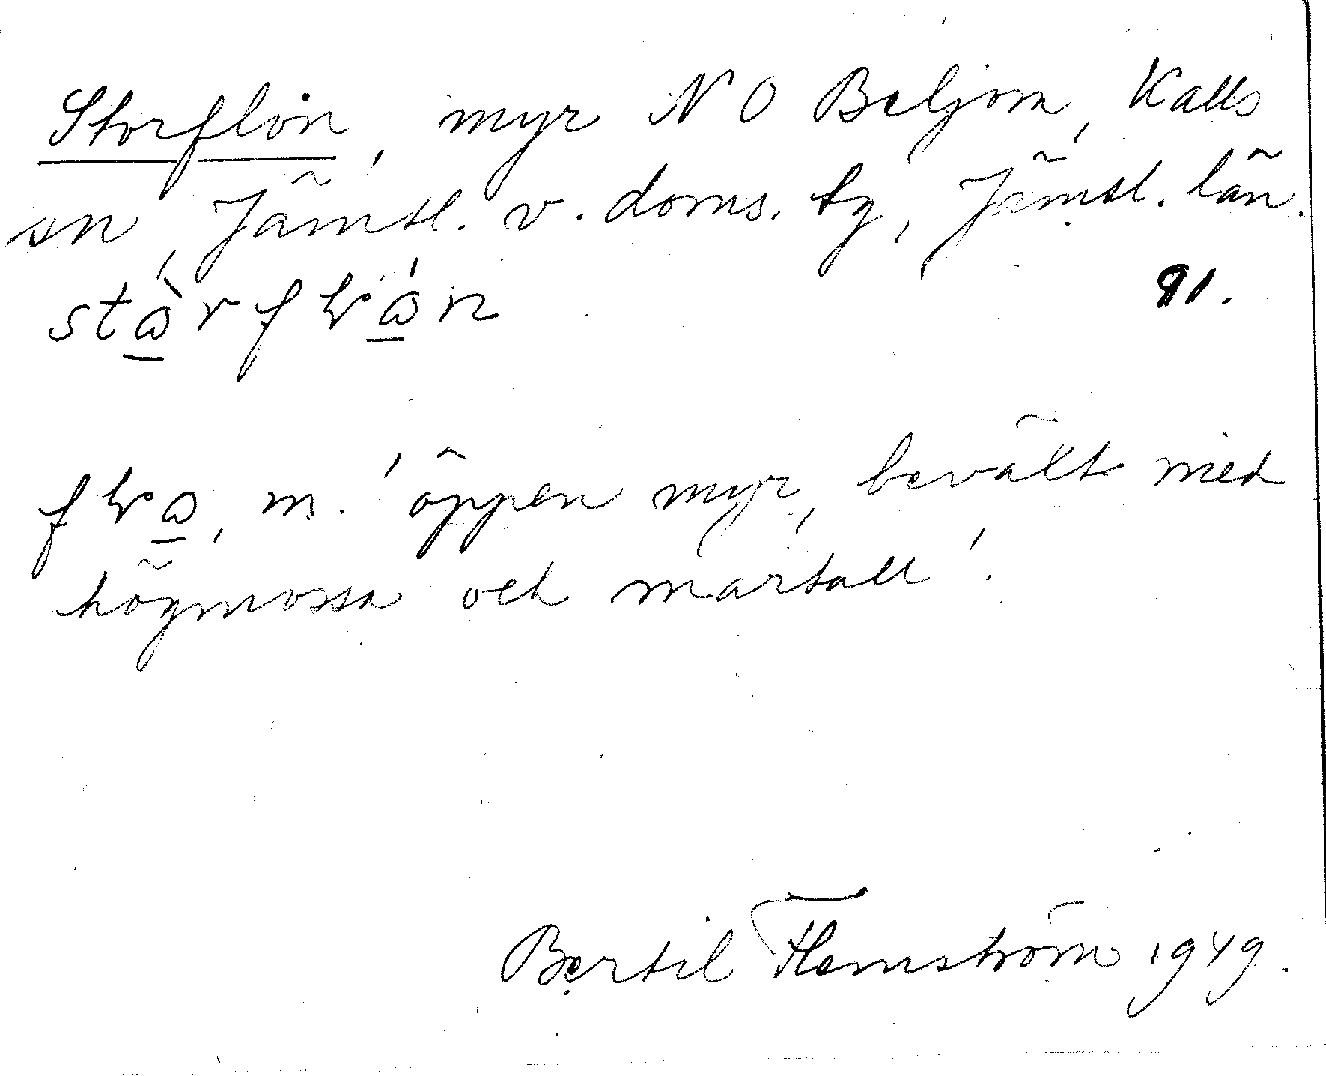 Storflon, myr NO Baljom, Kalls
sn, Jämtl. v. doms. tg, Jämtl. län.
91.
öppen myr, bevält med
högmossa och martall'.
Bertil Flemström 1949.